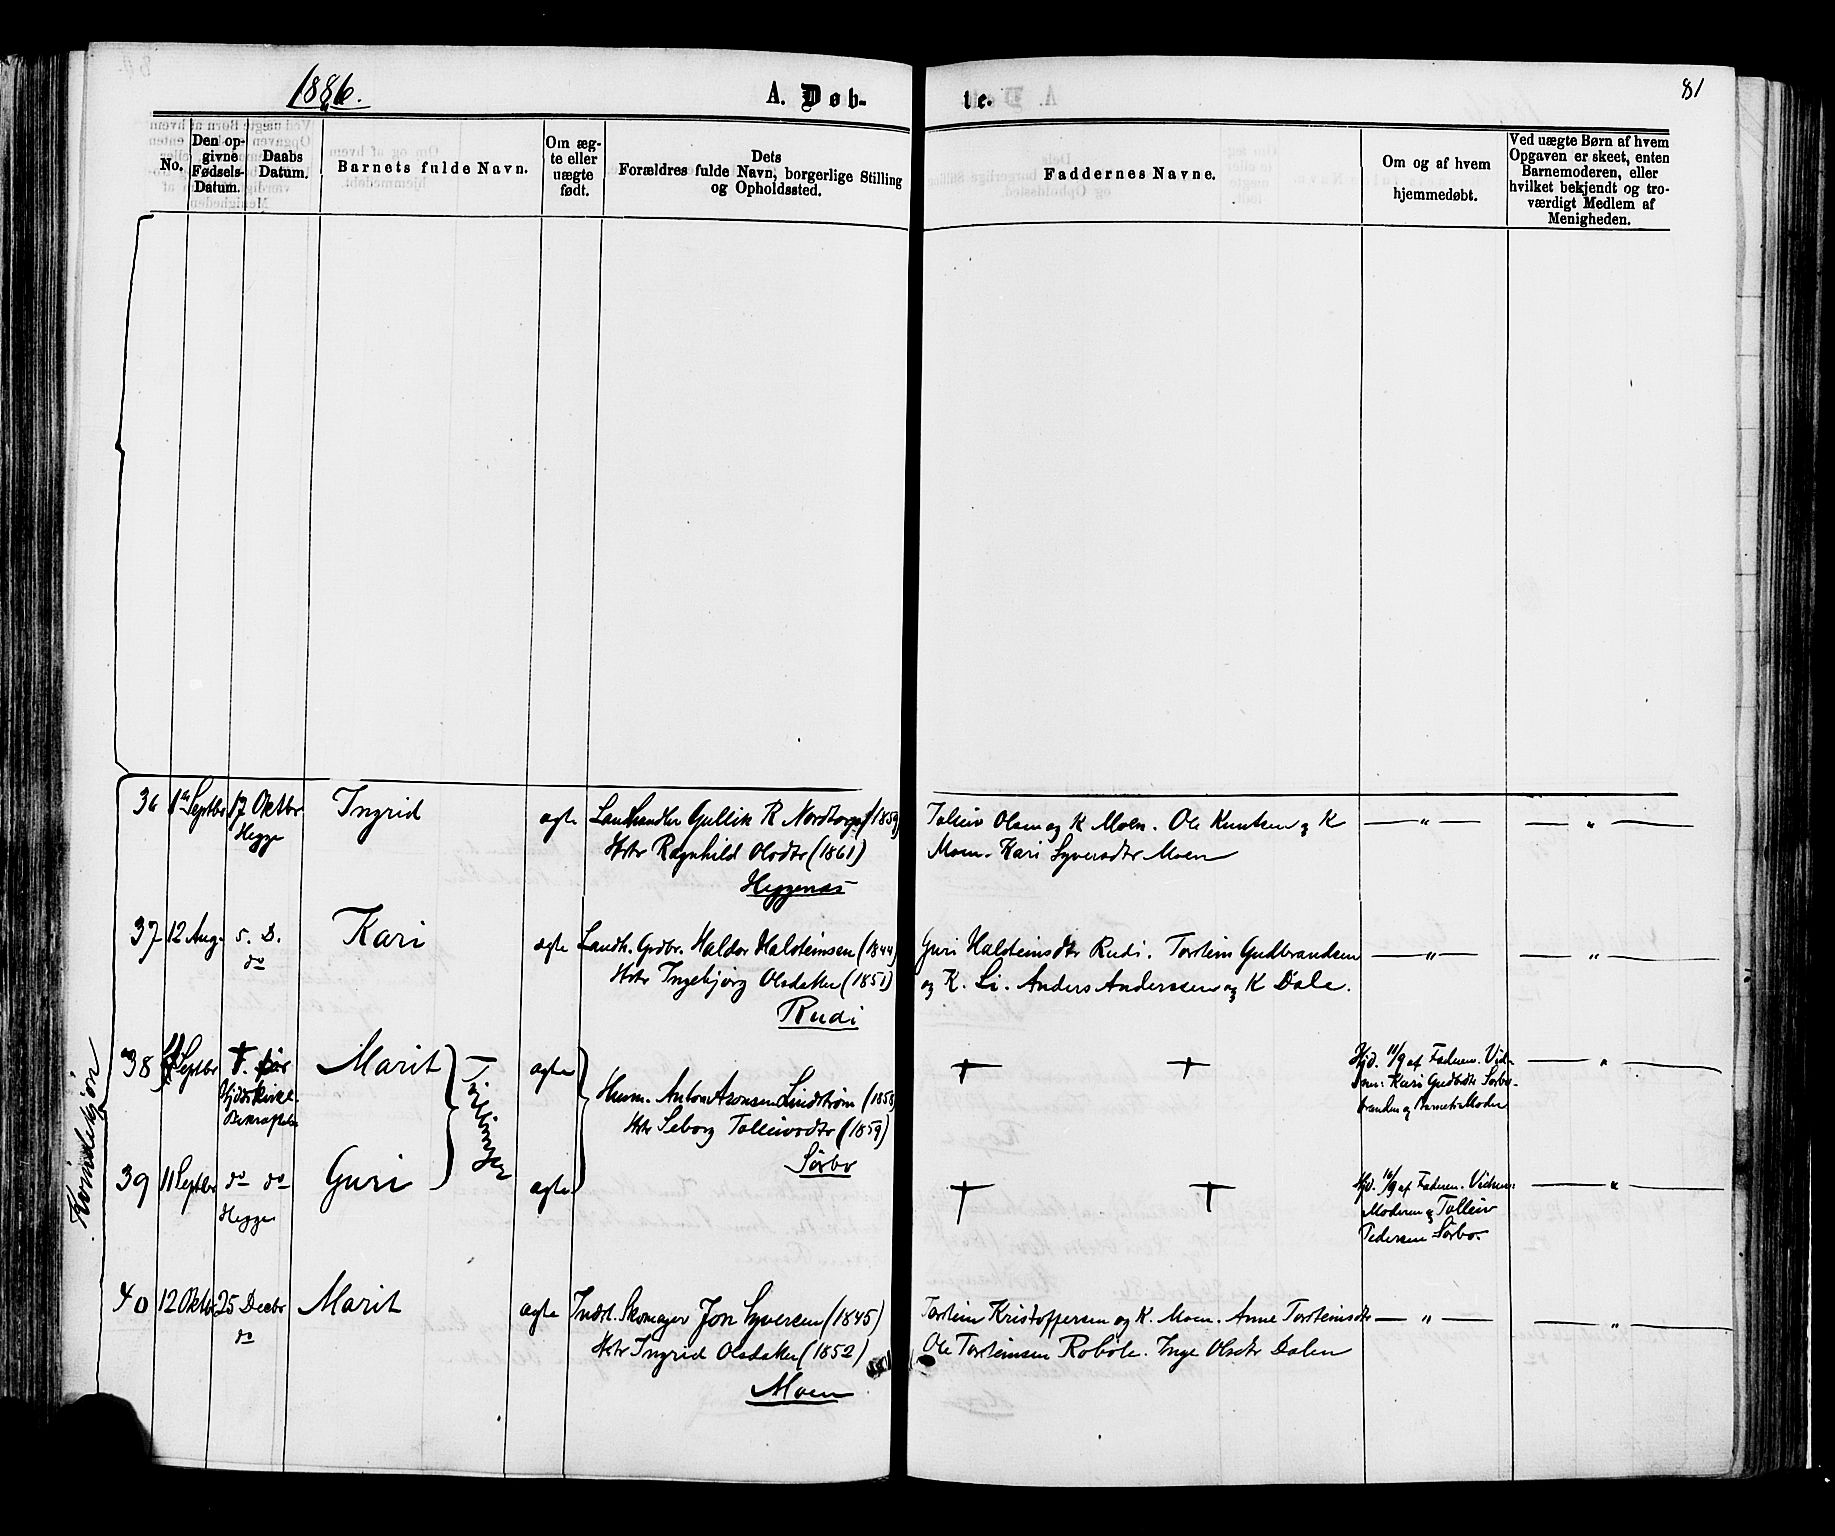 1886.
A. Døb-
te.
81
No.
Den op-
givne
Fødsels-
Datum.
Daabs
Datum.
Barnets fulde Navn.
Om æg-
te eller
uægte
født.
Dets
Forældres fulde Navn, borgerlige Stilling
og Opholdssted.
Faddernes Navne.
Om og af hvem
hjemmedøbt.
Ved uægte Børn af hvem
Opgaven er skeet, enten
Barnemoderen, eller
hvilket bekjendt og tro-
værdigt Medlem af
Menigheden.
36 1ste Septbr 17 Oktbr Ingrid ægte Landhandler Gullik R Nordtorp (1859) Tolleiv Olsen og K Moen. Ole Knutsen og K — " — — " —
Hegge Hstr Ragnhild Olsdtr (1861) Moen. Kari Syversdtr Moen
Heggenæs
37 12 Aug. s. D. Kari ægte Landh. Grdbr. Haldor Halsteinsen (1844) Guri Halsteinsdtr Rudi. Torstein Gudbrandsen — " — — " —
do Hstr Ingebjørg Olsdatter (1851) og K. Li. Anders Anderssen og K Dale.
Rudi
38 11 Septbr † før Marit ægte + + Hjd. 11/9 af Faderen. Vid- — " —
Hjdskirkel. Husm. Anton Aronsen Lindstrøm (1858) nem: Kari Gudbdtr Sørbo-
Bekræftelse Hstr Seborg Tolleivsdtr (1859) branden og Barnets Moder
Tvillinger
Sørbo
39 11 Septbr do do Guri ægte + + Hjd. 11/9 af Faderen. Vidnem: — " —
Hegge Moderen og Tolleiv
Pedersen Sørbo.
40 12 Oktbr 25 Decbr Marit ægte Indst. Skomager Jon Syversen (1845) Torstein Kristoffersen og K. Moen. Anne Torsteinsdtr — " — — " —
do Hstr Ingrid Olsdatter (1852) Ole Torsteinsen Robøle. Inge Olsdtr Dalen
Moen
Kvindekjøn